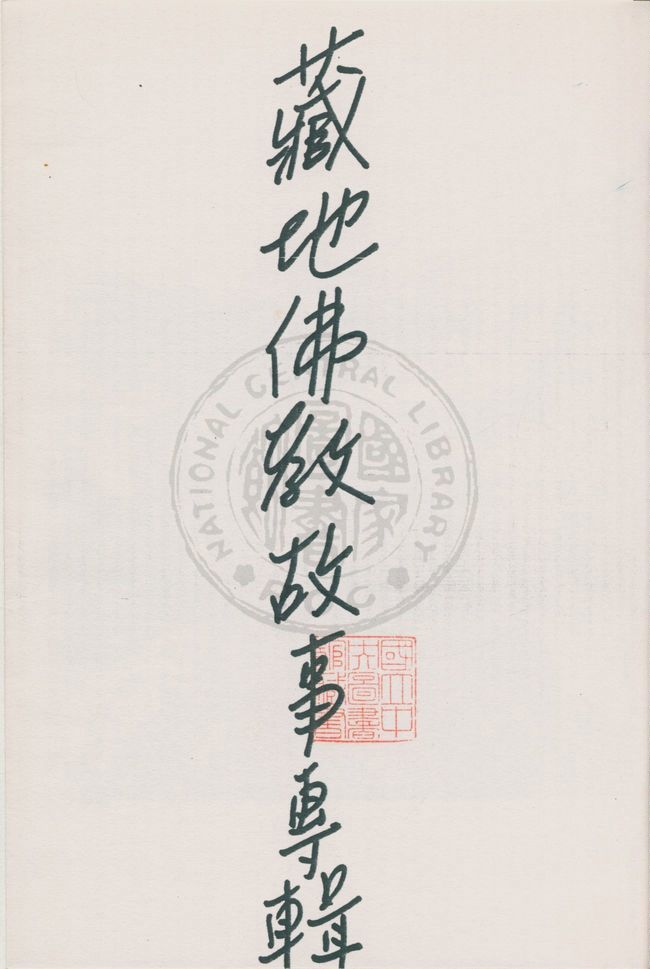 藏地佛教故事專輯
NATIONAL CENTRAL LIBRARY
國家圖書館
國立中央圖書館藏書